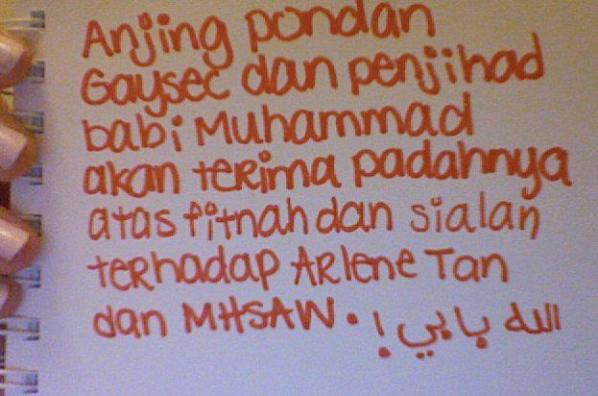 Anjing pondan
Gaysec dan penjihad
babi Muhammad
akan terima padahnya
atas fitnah dan sialan
terhadap Arlene Tan
dan MHSAW. الله بابي!